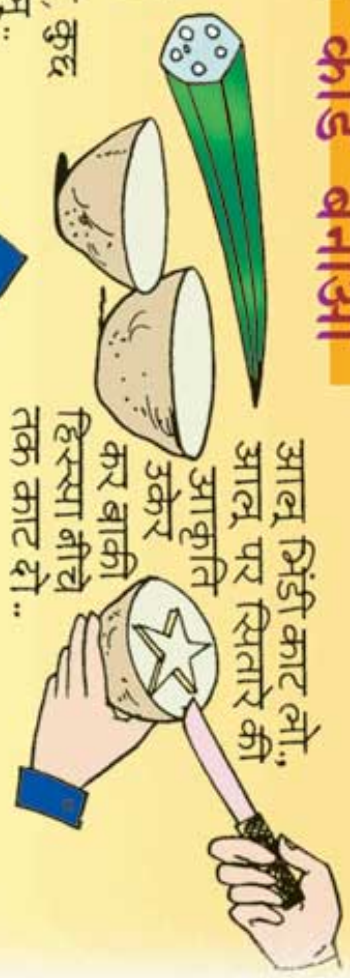 कार्ड बनाओ
कुछ
आलू भिंडी काट लो,,
आलू पर सितारे की
आकृति
उकेर
कर बाकी
हिस्सा नीचे
तक काट दो..